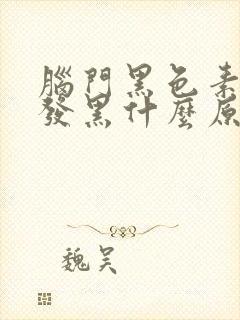 腦門黑色素
發黑什麼原
魏吴